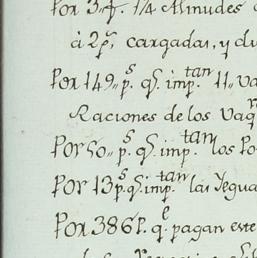 Por 3 f. 1/4 Almudes
à 2 p.s, cargadas, y di
Por 149,, p.s q.s imp.tan 11,, va
Raciones de los Vaq
Por 50,, p.s q.s imp.tan los Po
Por 13 p.s q.s imp.tan las Yegua
Por 386 P. q.e pagan este